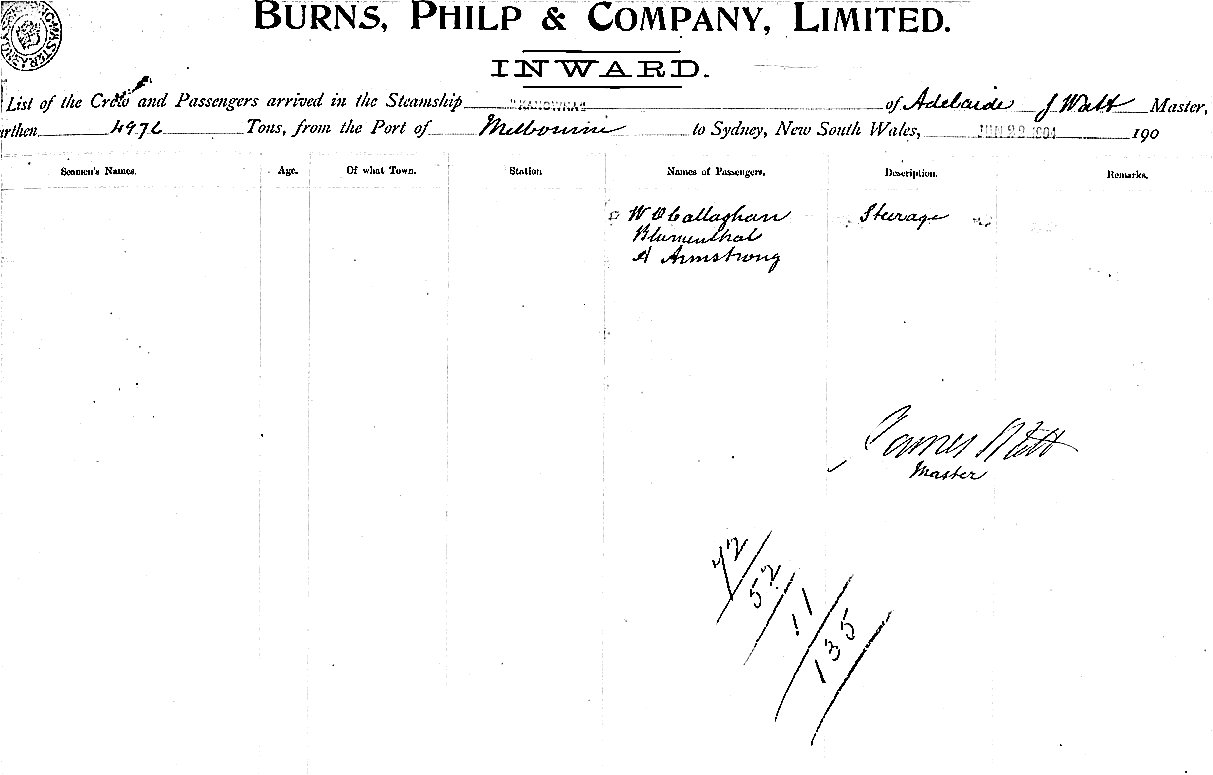 BURNS, PHILP & COMPANY, LIMITED.
INWARD.
List of the Crew and Passengers arrived in the Steamship "KANOWNA" of Adelaide J Watt Master,
urthen 4976 Tons, from the Port of Melbourne to Sydney, New South Wales, JUN 1904 190
Seamen's Names. Age. Of what Town. Station Names of Passengers. Description. Remarks.
W O'Callaghan Steerage
Blumenthal
A Armstrong
James Watt
Master
72/
52/
11/
135/